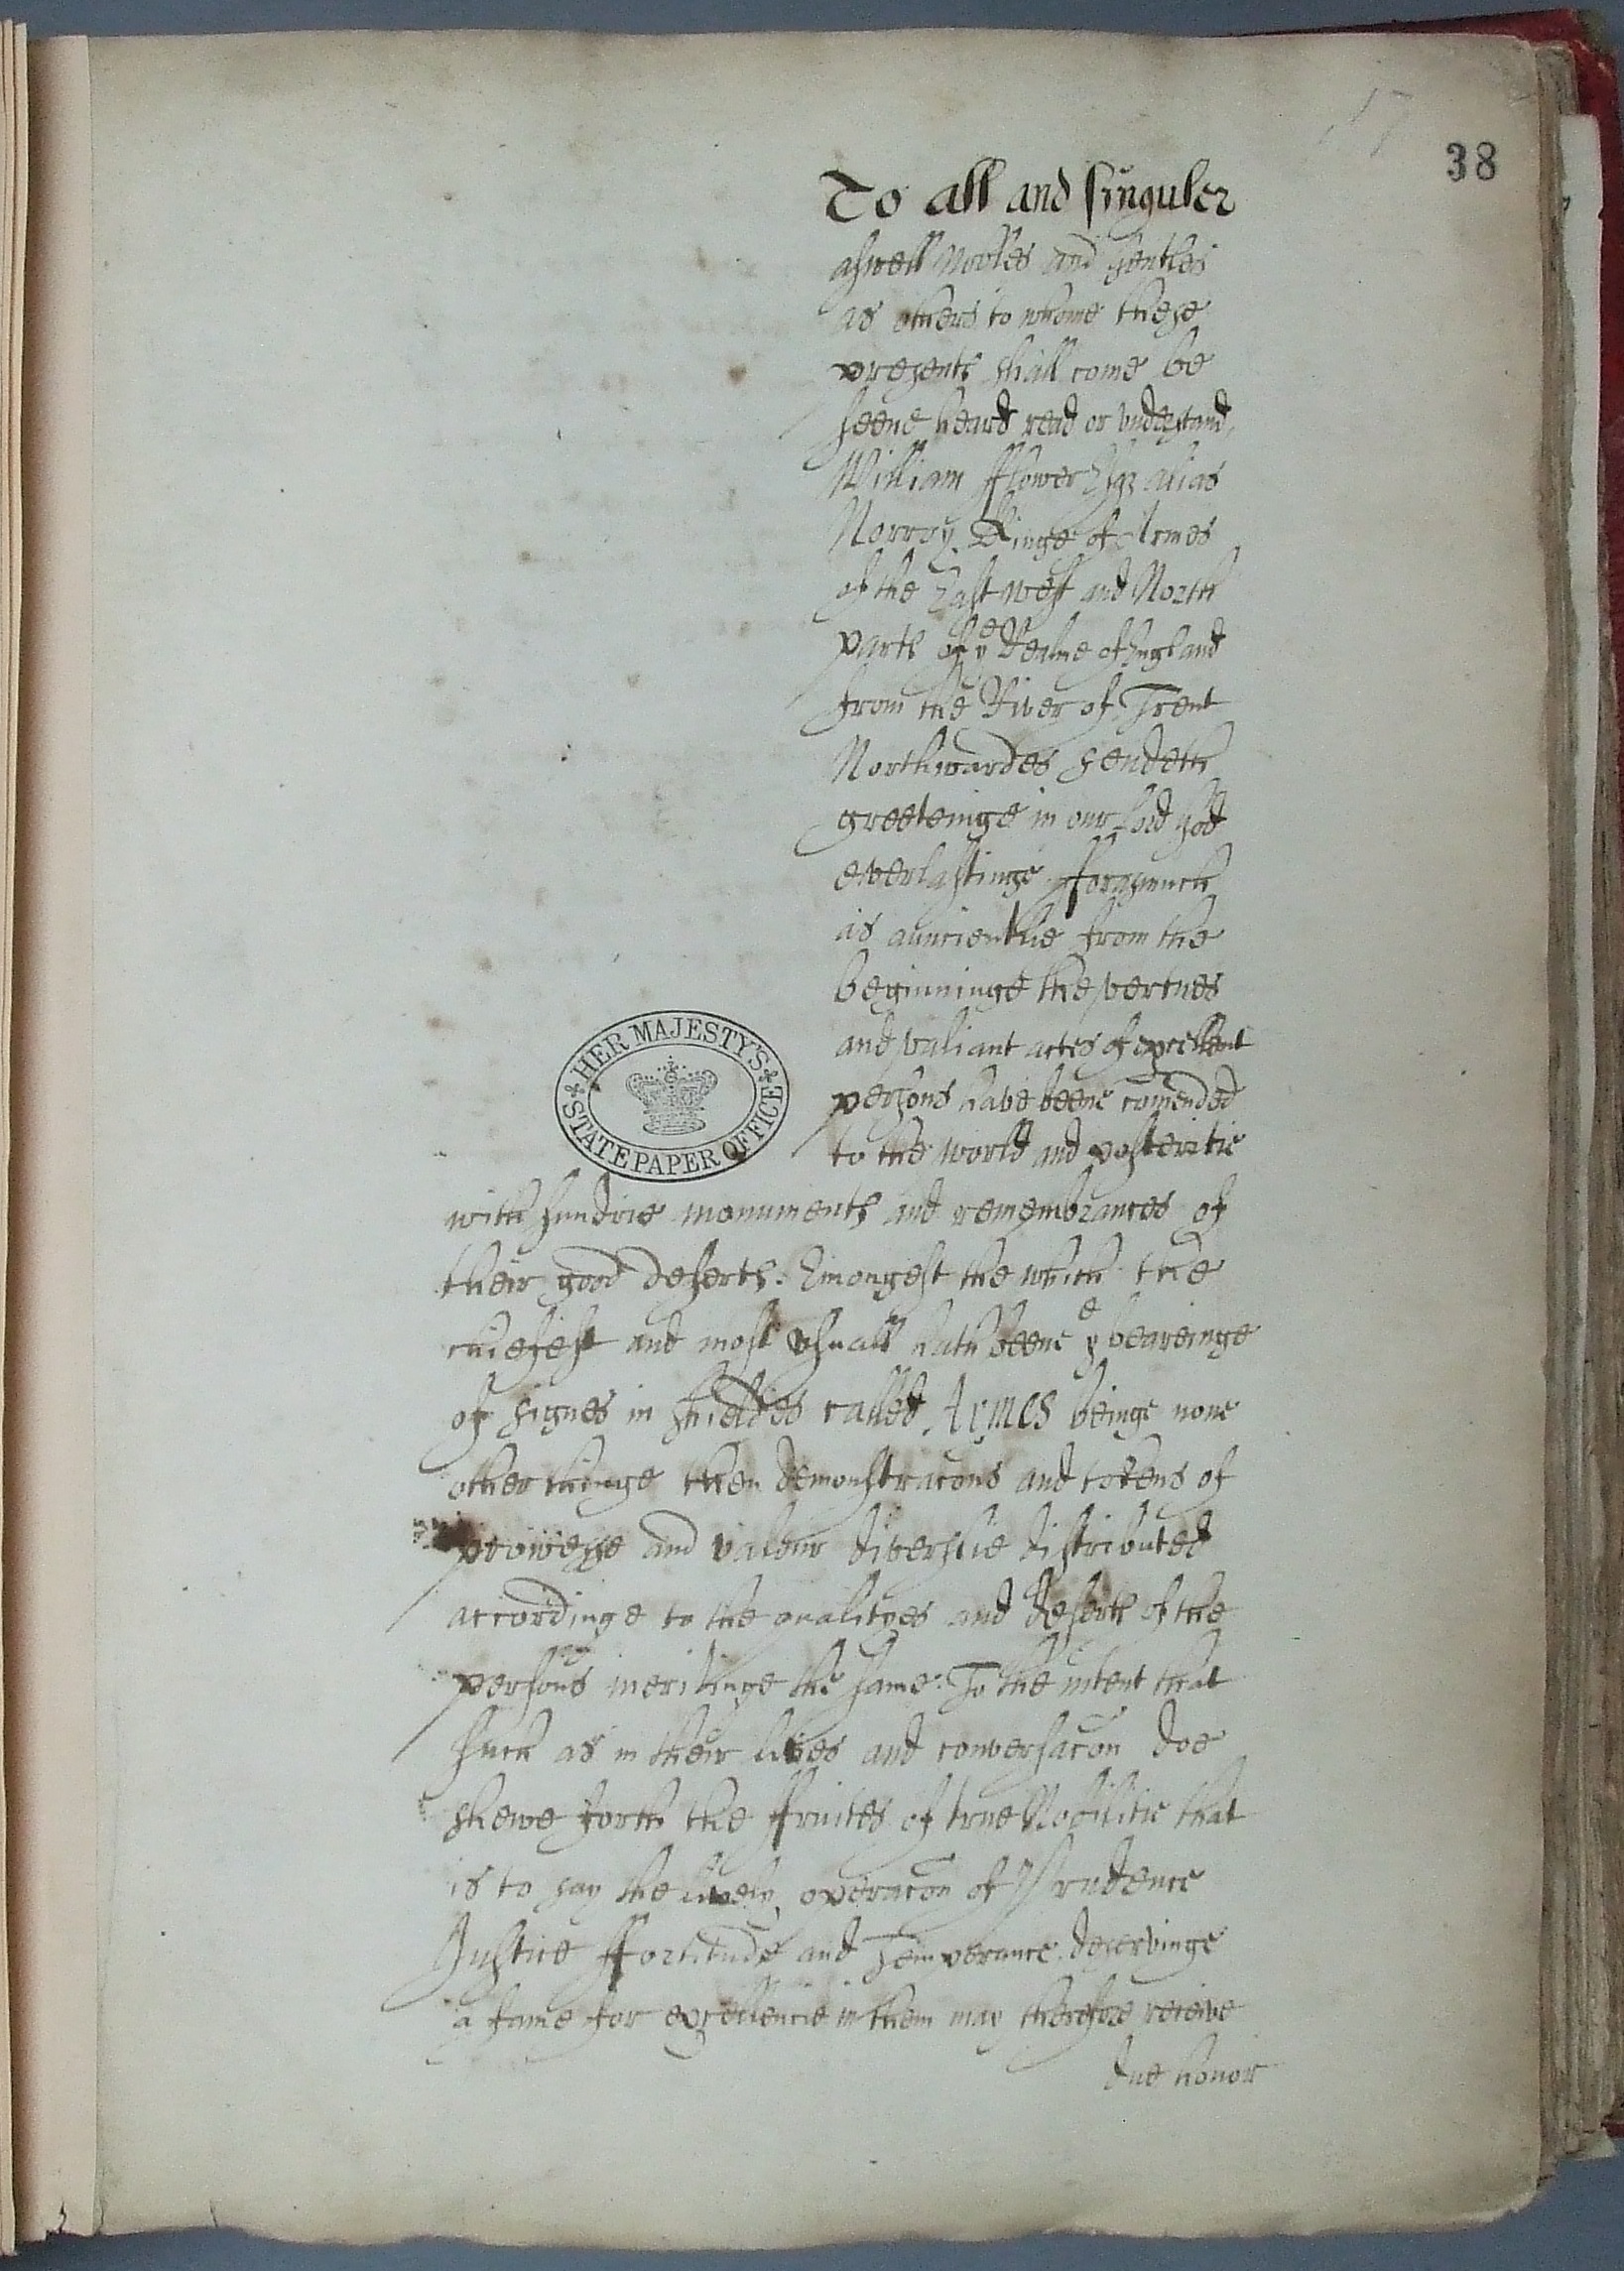 17
38
To all and singuler
aswell Nobles and gentles
as others to whome these
presents shall come be
seene heard read or vnderstand,
William fflower Esqr alias
Norroy Kinge of Armes
of the East west and North
parts of ye Realme of England
from the River of Trent
Northwardes sendeth
greeteinge in our lord god
everlastinge fforasmuch
as auncientlie from the
beginninge the vertues
and valiant actes of excellent
persons have beene comended
to the world and posteritie
HER MAJESTY'S STATE PAPER OFFICE
with sundrie monuments and remembrances of
their good deserts. Emongest the which the
chiefest and most vsuall hath beene ye beareinge
of signes in shieldes called Armes beinge none
other thinge then demonstracons and tokens of
prowesse and valour diverslie distributed
accordinge to the qualityes and deserts of the
persons meritinge the same. To the intent that
such as in their lives and conversacon doe
shewe forth the ffruites of true Nobilitie that
is to say the lively operacon of Prudence
Justice ffortitude and Temperance deservinge
a fame for excellencie in them may therefore receive
due honor